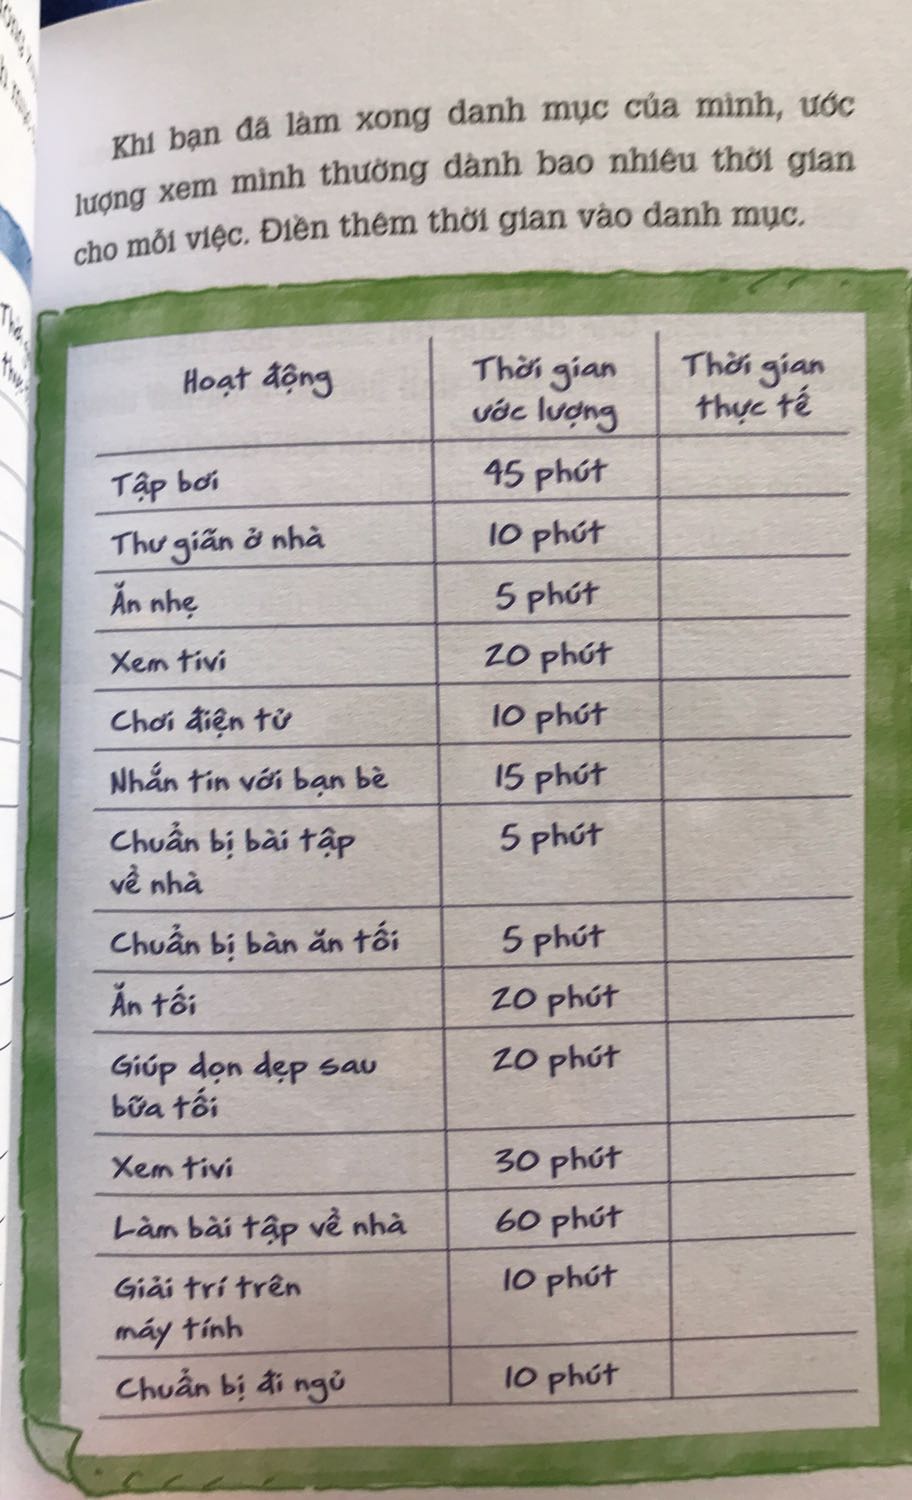 Khi bạn đã làm xong danh mục của mình, ước
lượng xem mình thường dành bao nhiêu thời gian
cho mỗi việc. Điền thêm thời gian vào danh mục.
Hoạt động
Thời gian
ước lượng
Thời gian
thực tế
Tập bơi
45 phút
Thư giãn ở nhà
10 phút
Ăn nhẹ
5 phút
Xem tivi
20 phút
Chơi điện tử
10 phút
Nhắn tin với bạn bè
15 phút
Chuẩn bị bài tập
về nhà
5 phút
Chuẩn bị bàn ăn tối
5 phút
Ăn tối
20 phút
Giúp dọn dẹp sau
bữa tối
20 phút
Xem tivi
30 phút
Làm bài tập về nhà
60 phút
Giải trí trên
máy tính
10 phút
Chuẩn bị đi ngủ
10 phút